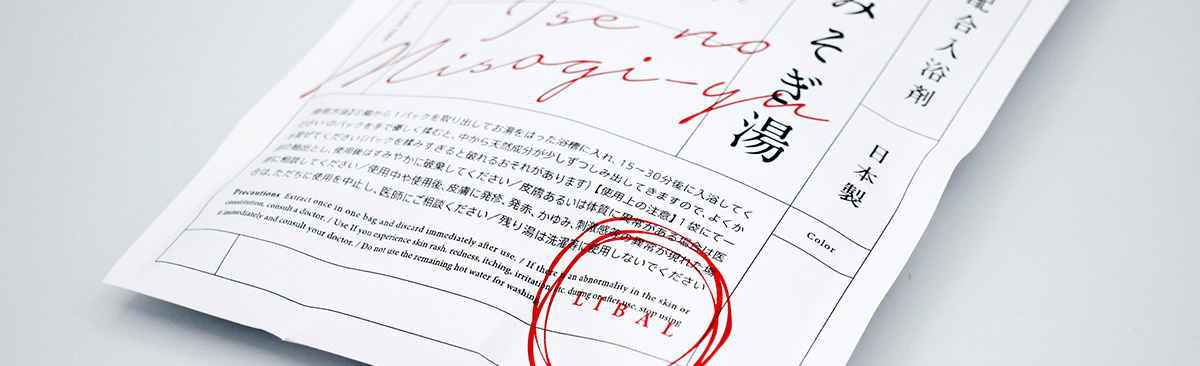 Ise no
Misogi-yu
みそぎ湯
配合入浴剤
日本製
Color
【使用方法】①箱から1パックを取り出してお湯をはった浴槽に入れ、15〜30分後に入浴してく
ださい②パックを手で優しく揉むと、中から天然成分が少しずつしみ出してきますので、よくか
き混ぜてください(パックを揉みすぎると破れるおそれがあります)【使用上の注意】1袋にて一
回の抽出とし、使用後はすみやかに破棄してください/皮膚あるいは体質に異常がある場合は医
師に相談してください/使用中や使用後、皮膚に発疹、発赤、かゆみ、刺激感等の異常が現れた場
合は、ただちに使用を中止し、医師にご相談ください/残り湯は洗濯等に使用しないでください
Precautions Extract once in one bag and discard immediately after use. / If there is an abnormality in the skin or
constitution, consult a doctor. / Use If you experience skin rash, redness, itching, irritation, etc. during or after use, stop using
it immediately and consult your doctor. / Do not use the remaining hot water for washing.
LIBAL